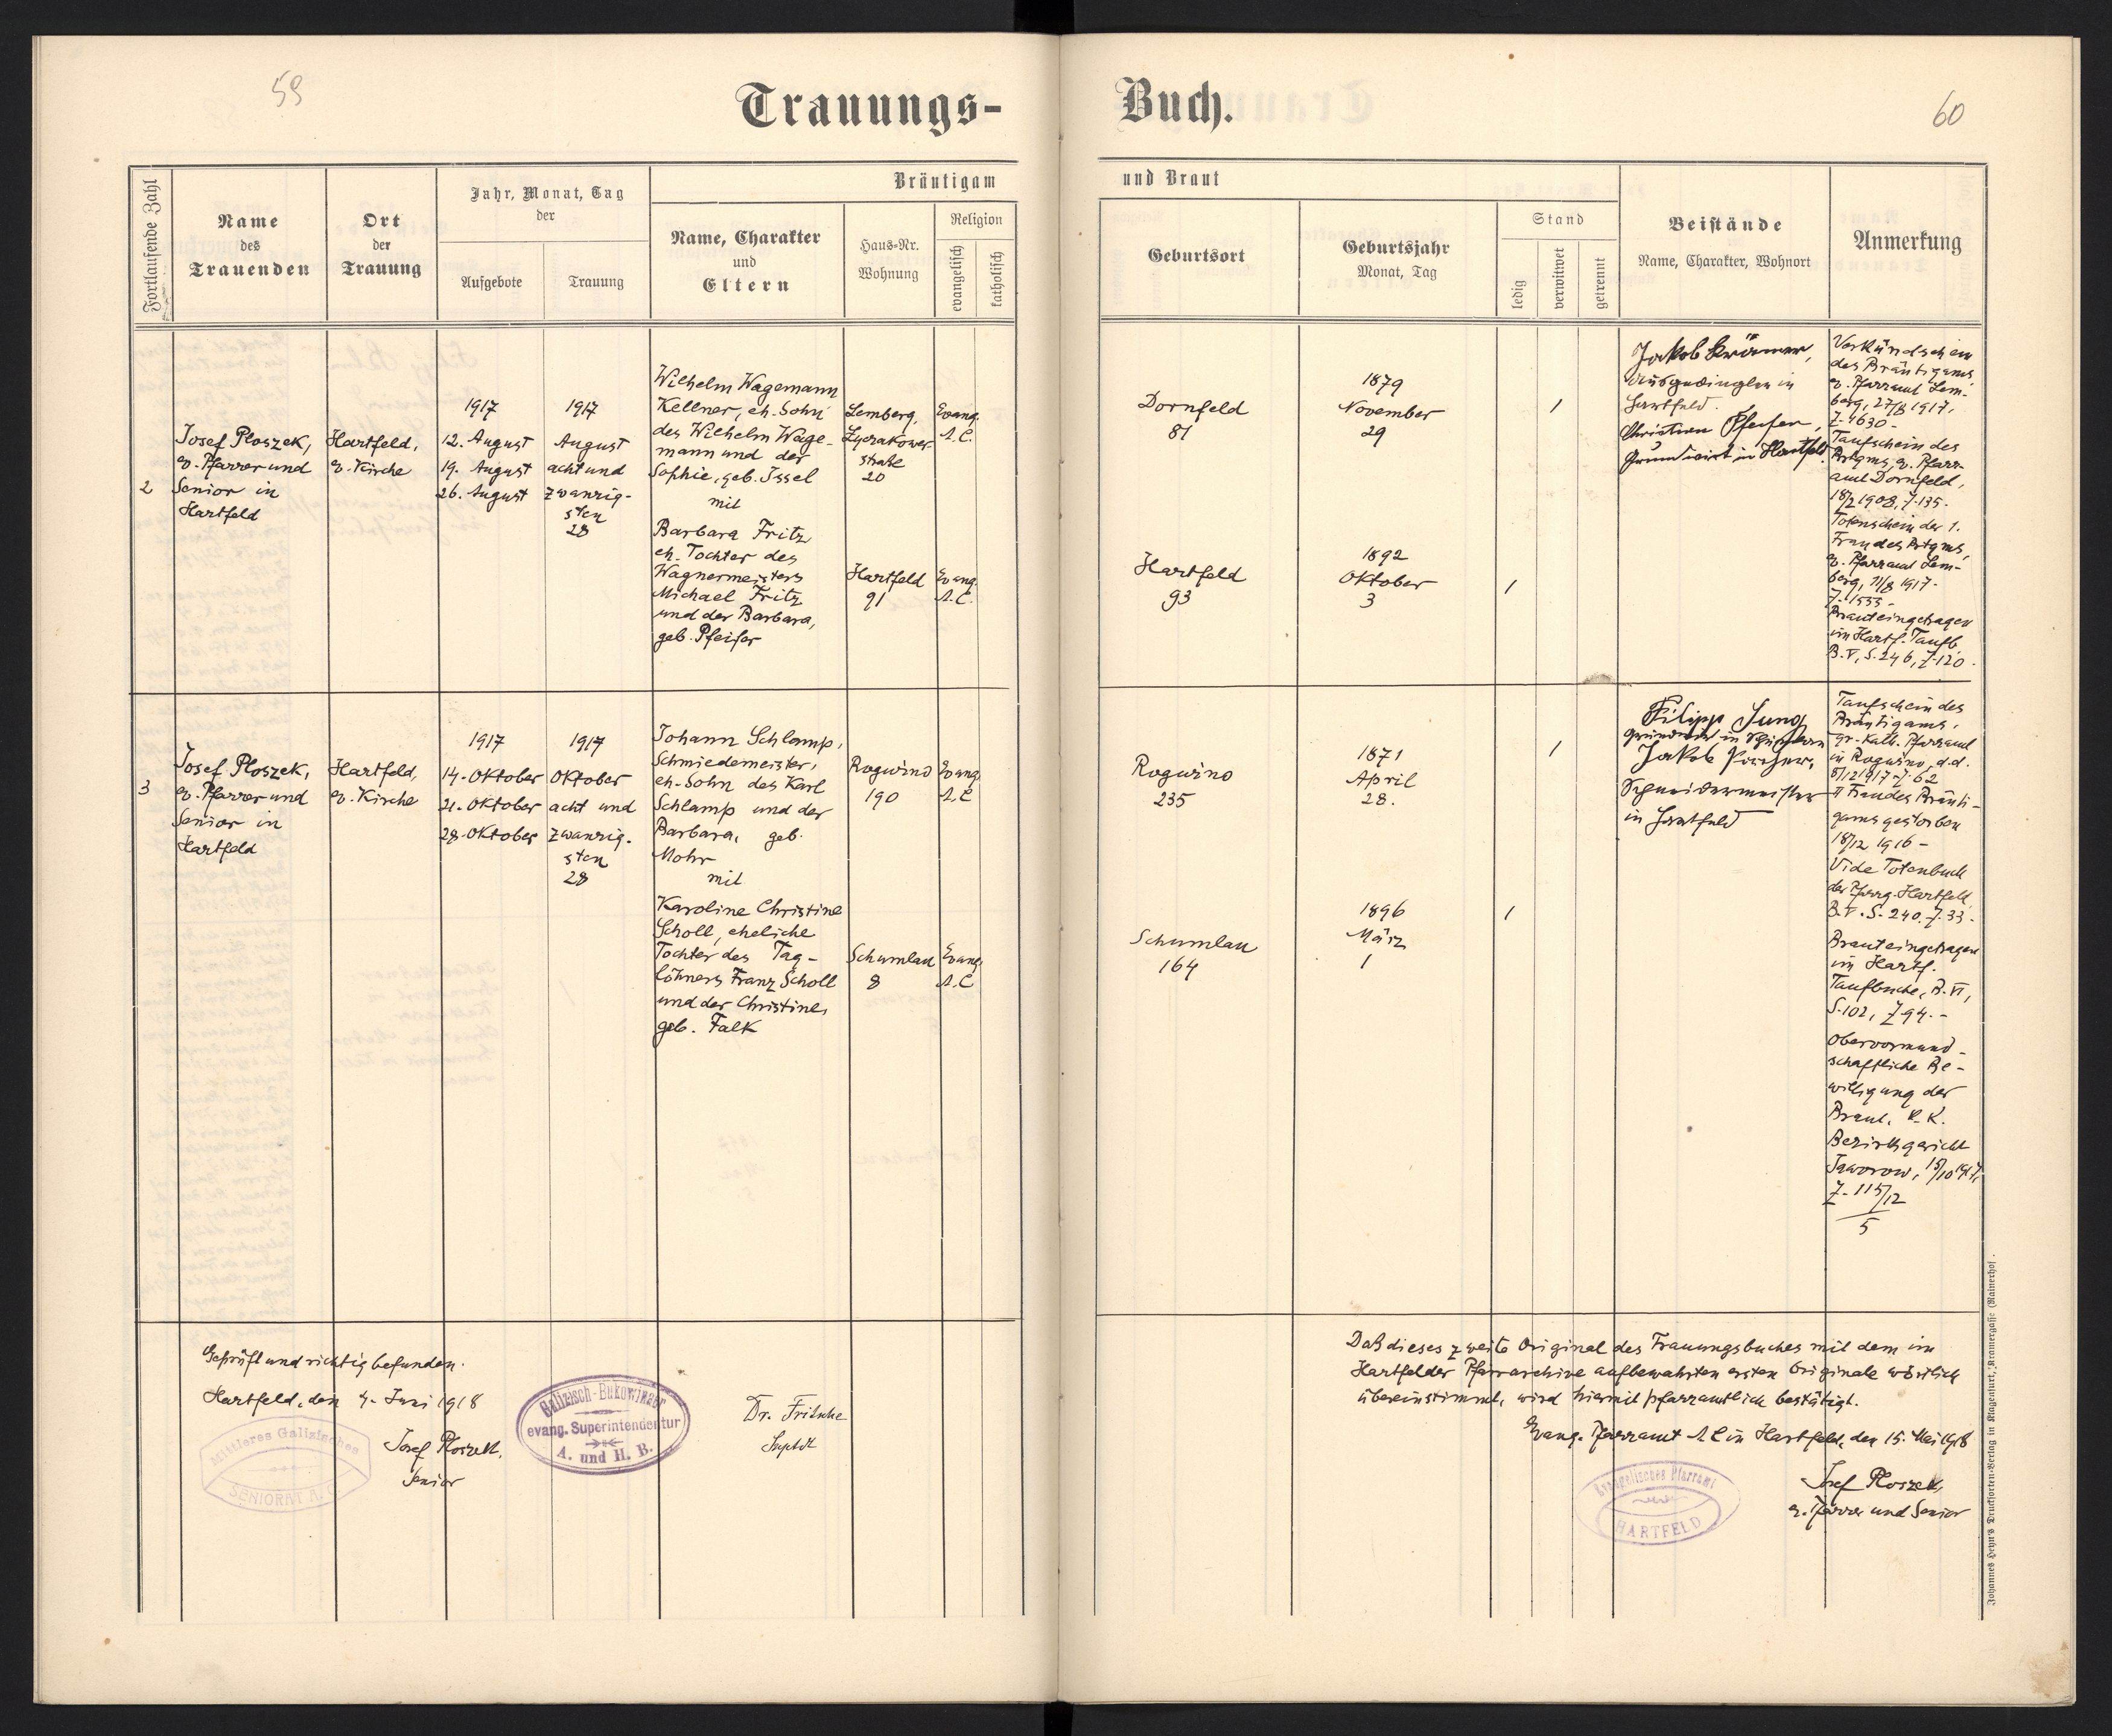 59
Trauungs-
Fortlaufende Zahl
Name
des
Trauenden
Ort
der
Trauung
Jahr, Monat, Tag
der
Aufgebote
Trauung
Bräutigam
Name, Charakter
und
Eltern
Haus-Nr.
Wohnung
Religion
evangelisch
katholisch
2
Josef Ploszek,
ev. Pfarrer und
Senior in
Hartfeld
Hartfeld,
ev. Kirche
1917
12. August
19. August
26. August
1917
August
acht und
zwanzig-
sten
28
Wilhelm Wagemann
Kellner, eh. Sohn
des Wilhelm Wage-
mann und der
Sophie, geb. Issel
mit
Barbara Fritz
eh. Tochter des
Wagnermeisters
Michael Fritz
und der Barbara,
geb. Pfeifer
Lemberg,
Lyczakower
straße
20
Hartfeld
91
Evang.
A.C.
Evang.
A.C.
3
Josef Ploszek,
ev. Pfarrer und
Senior in
Hartfeld
Hartfeld,
ev. Kirche
1917
14. Oktober
21. Oktober
28. Oktober
1917
Oktober
acht und
zwanzig-
sten
28
Johann Schlamp,
Schmiedemeister,
eh. Sohn des Karl
Schlamp und der
Barbara, geb.
Mohr
mit
Karoline Christine
Scholl, eheliche
Tochter des Tag-
löhners Franz Scholl
und der Christine,
geb. Falk
Roguzno
190
Schumlau
8
Evang.
A.C
Evang.
A.C
Geprüft und richtig befunden.
Hartfeld, den 4. Juni 1918
Mittleres Galizisches
SENIORAT A. C.
Josef Ploszek,
Senior
Galizisch-Bukowinaer
evang. Superintendentur
A. und H. B.
Dr. Fritsche
Suptdt
Buch.
60
und Braut
Geburtsort
Geburtsjahr
Monat, Tag
Stand
ledig
verwitwet
getrennt
Beistände
Name, Charakter, Wohnort
Anmerkung
Dornfeld
81
1879
November
29
/
Hartfeld
93
1892
Oktober
3
/
Jakob Krämer,
Ausgedingler in
Hartfeld.
Christian Pfeifer,
Grundwirt in Hartfeld.
Verkündschein
des Bräutigams
ev. Pfarramt Lem-
berg, 27/8 1917,
Z. 1630 -
Taufschein des
Brtgms, ev. Pfarr-
amt Dornfeld,
18/2 1908, Z. 135.
Totenschein der 1.
Frau des Brtgms,
ev. Pfarramt Lem-
berg, 11/8 1917.
Z. 1555 -
Braut eingetragen
im Hartf. Taufb.
B. V, S. 246, Z. 120.
Roguzno
235
1871
April
28.
/
Schumlau
164
1896
März
1
/
Filipp Jung
Grundwirt in
Jakob
Schneidermeister
in Hartfeld
Taufschein des
Bräutigams,
gr.-kath. Pfarramt
in Roguzno, d.d.
Z. 62
II Frau des Bräuti-
gams gestorben
18/12 1916 -
Vide Totenbuch
der Pfarrg. Hartfeld
B. V. S. 240. Z. 33.
Braut eingetragen
im Hartf.
Taufbuche, B. VI,
S. 102, Z 94. -
Obervormund-
schaftliche Be-
willigung der
Braut, k. k.
Bezirksgericht
Jaworow, 15/10 1917,
Z. 115/12
5
Daß dieses zweite Original des Trauungsbuches mit dem im
Hartfelder Pfarrarchive aufbewahrten ersten Originale wörtlich
übereinstimmt, wird hiermit pfarramtlich bestätigt.
Evang. Pfarramt A. C in Hartfeld, den 15. Mai 1918
Evangelisches Pfarramt
HARTFELD
Josef Ploszek,
ev. Pfarrer und Senior
Johannes Heyn's Drucksorten-Verlag in Klagenfurt, Kramergasse (Rainerhof).